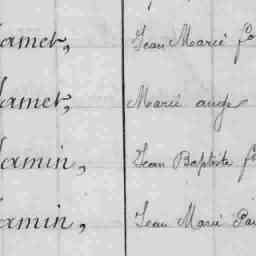 amet, Jean Marie
amet, Marie ange
amin, Jean Baptiste
amin, Jean Marie